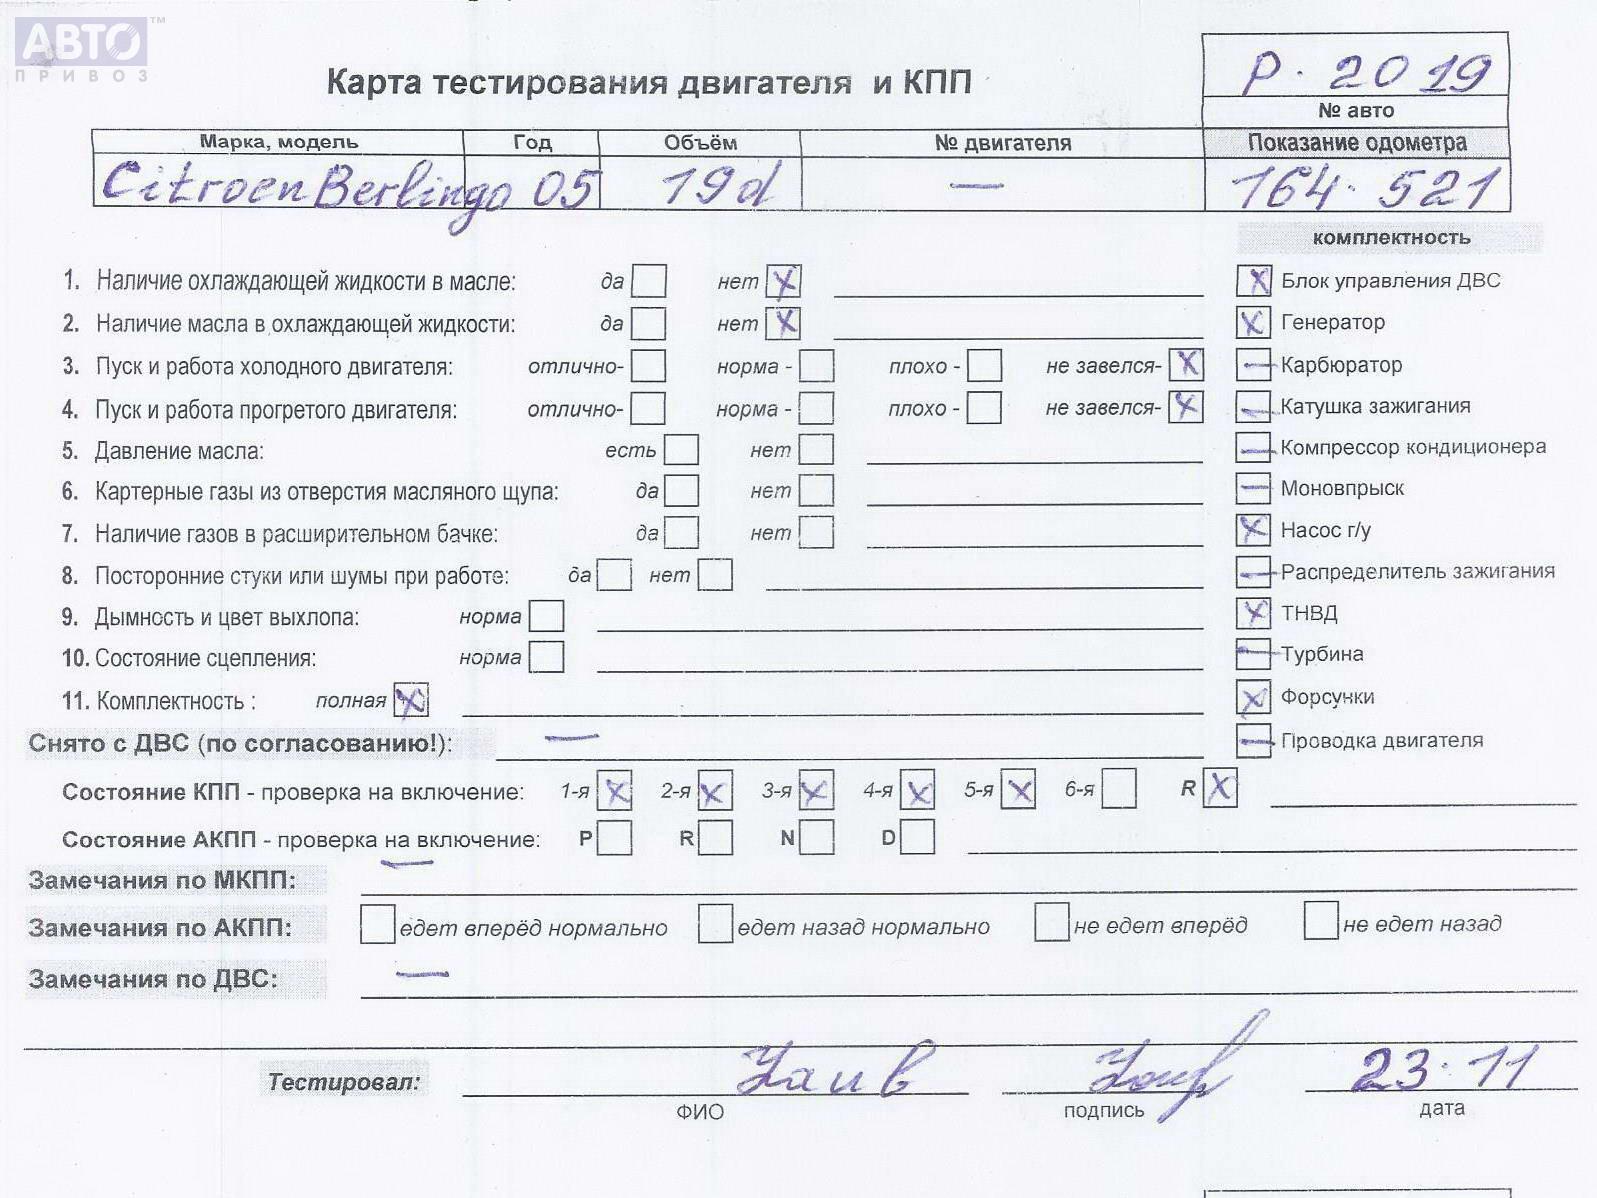 АВТО™
ПРИВОЗ
Карта тестирования двигателя и КПП
Р. 2019
№ авто
Марка, модель Год Объём № двигателя Показание одометра
Citroen Berlingo 05 19d — 164. 521
комплектность
1. Наличие охлаждающей жидкости в масле: да нет X
X Блок управления ДВС
2. Наличие масла в охлаждающей жидкости: да нет X
X Генератор
3. Пуск и работа холодного двигателя: отлично- норма - плохо - не завелся- X
— Карбюратор
4. Пуск и работа прогретого двигателя: отлично- норма - плохо - не завелся- X
— Катушка зажигания
5. Давление масла: есть нет
— Компрессор кондиционера
6. Картерные газы из отверстия масляного щупа: да нет
— Моновпрыск
7. Наличие газов в расширительном бачке: да нет
X Насос г/у
8. Посторонние стуки или шумы при работе: да нет
— Распределитель зажигания
9. Дымность и цвет выхлопа: норма
X ТНВД
10. Состояние сцепления: норма
— Турбина
11. Комплектность : полная X
X Форсунки
Снято с ДВС (по согласованию!): —
— Проводка двигателя
Состояние КПП - проверка на включение: 1-я X 2-я X 3-я X 4-я X 5-я X 6-я R X
Состояние АКПП - проверка на включение: P R N D
Замечания по МКПП: —
Замечания по АКПП: едет вперёд нормально едет назад нормально не едет вперёд не едет назад
Замечания по ДВС: —
Тестировал: 23.11
ФИО подпись дата